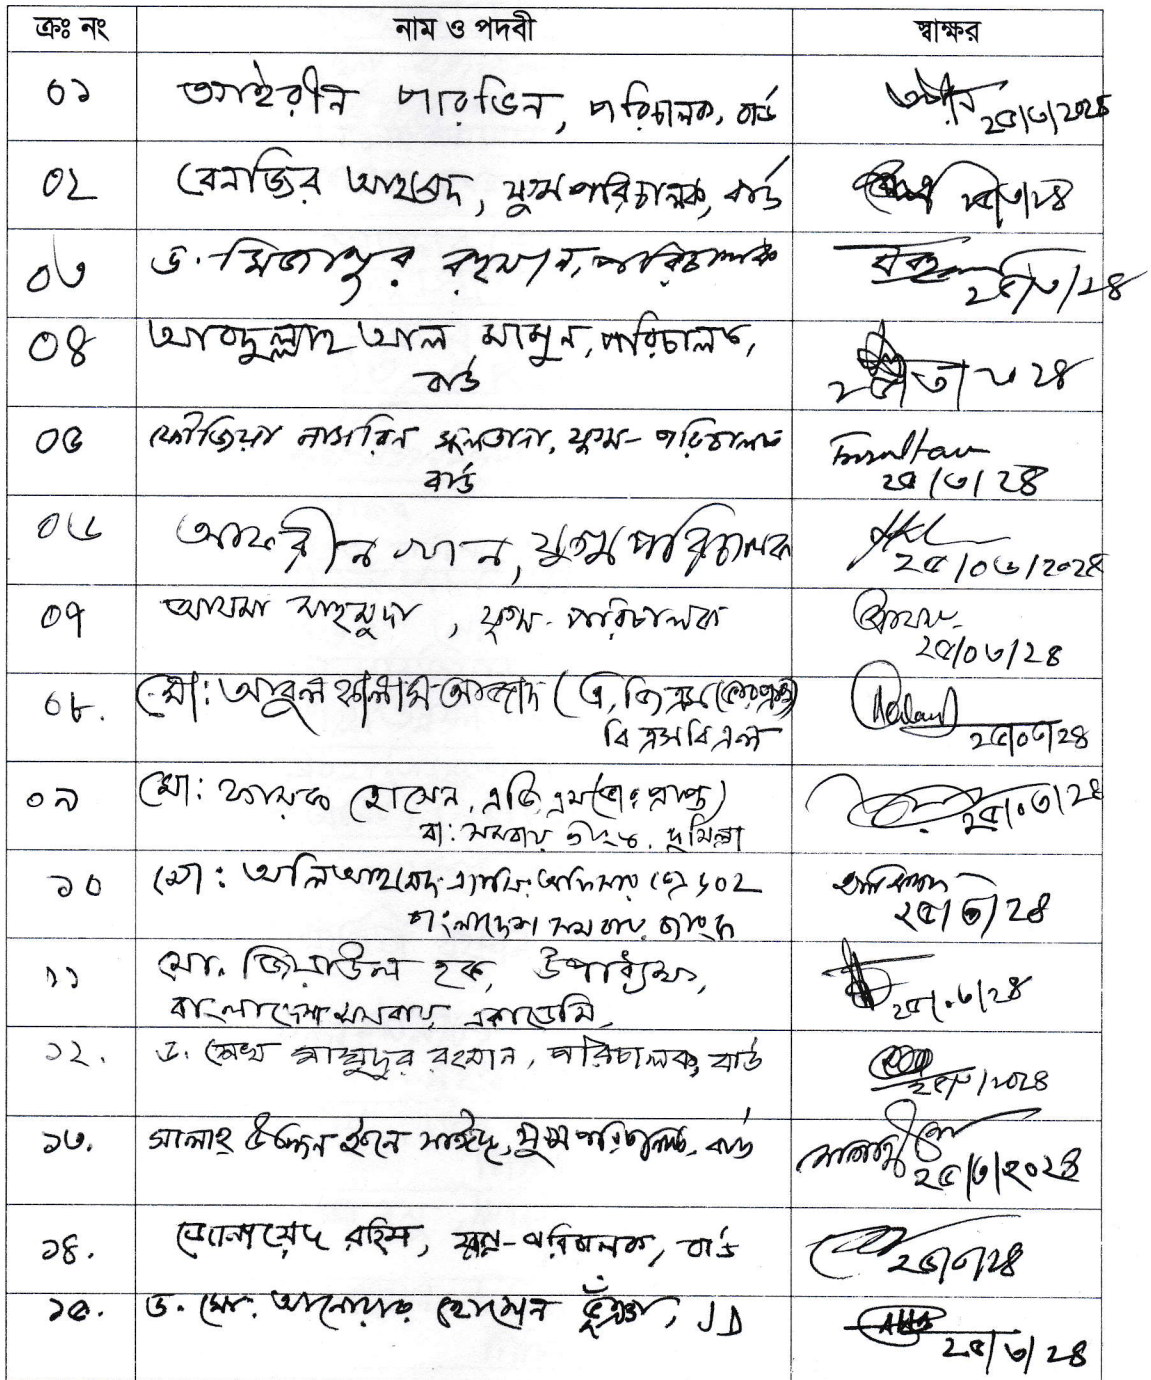 ক্রঃ নং নাম ও পদবী স্বাক্ষর
০১ আইরীন পারভিন, পরিচালক, বার্ড ২৫/৩/২০২৪
০২ বেনজির আহমেদ, যুগ্মপরিচালক, বার্ড ২৫/৩/২৪
০৩ ড. মিজানুর রহমান, পরিচালক ২৫/৩/২৪
০৪ আবদুল্লাহ আল মামুন, পরিচালক,
বার্ড ২৫/৩/২০২৪
০৫ ফৌজিয়া নাসরিন সুলতানা, যুগ্ম-পরিচালক
বার্ড ২৫/৩/২৪
০৬ আফরীন খান, যুগ্ম পরিচালক ২৫/০৩/২০২৪
০৭ আযমা মাহমুদা, যুগ্ম-পরিচালক
২৫/০৩/২৪
০৮. মো: আবুল কালাম আজাদ (এ,জি,এম
বি এস বি এল ২৫/০৩/২৪
০৯ মো: হোসেন, এজি,এম(ভা: প্রাপ্ত)
বা: সমবায় কুমিল্লা ২৫/০৩/২৪
১০ মো: অলি আহমেদ
বাংলাদেশ সমবায় ২৫/৩/২৪
১১ মো. জিয়াউল হক, উপাধ্যক্ষ,
বাংলাদেশ সমবায় একাডেমি, ২৫/০৩/২৪
১২. ড. শেখ মাসুদুর রহমান, পরিচালক, বার্ড ২৫/৩/২০২৪
১৩. সালাহ উদ্দিন ইবনে সাঈদ, যুগ্ম পরিচালক, বার্ড ২৫/৩/২০২৪
১৪. জোনায়েদ রহিম, যুগ্ম-পরিচালক, বার্ড ২৫/৩/২৪
১৫. ড. মো. আনোয়ার হোসেন ভূঁঞা, JD
২৫/৩/২৪